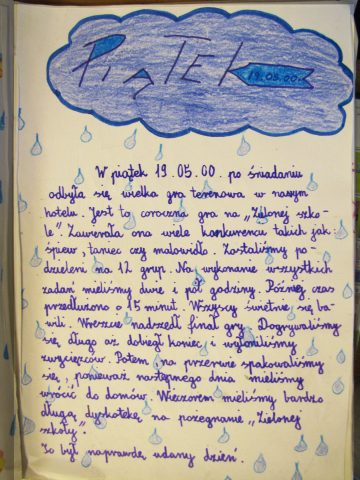 PIĄTEK
19.05.00.
W piątek 19.05.00. po śniadaniu
odbyła się wielka gra terenowa w naszym
hotelu. Jest to coroczna gra na „Zielonej szko-
le”. Zawierała ona wiele konkurencji takich jak:
śpiew, taniec czy malowidło. Zostaliśmy po-
dzieleni na 12 grup. Na wykonanie wszystkich
zadań mieliśmy dwie i pół godziny. Później czas
przedłużono o 15 minut. Wszyscy świetnie się ba-
wili. Wreszcie nadszedł finał gry. Dogrywaliśmy
się długo aż dobiegł koniec i wyłoniliśmy
zwycięzców. Potem na przerwie spakowaliśmy
się, ponieważ następnego dnia mieliśmy
wrócić do domów. Wieczorem mieliśmy bardzo
długą dyskotekę na pożegnanie „Zielonej
szkoły”.
To był naprawdę udany dzień.